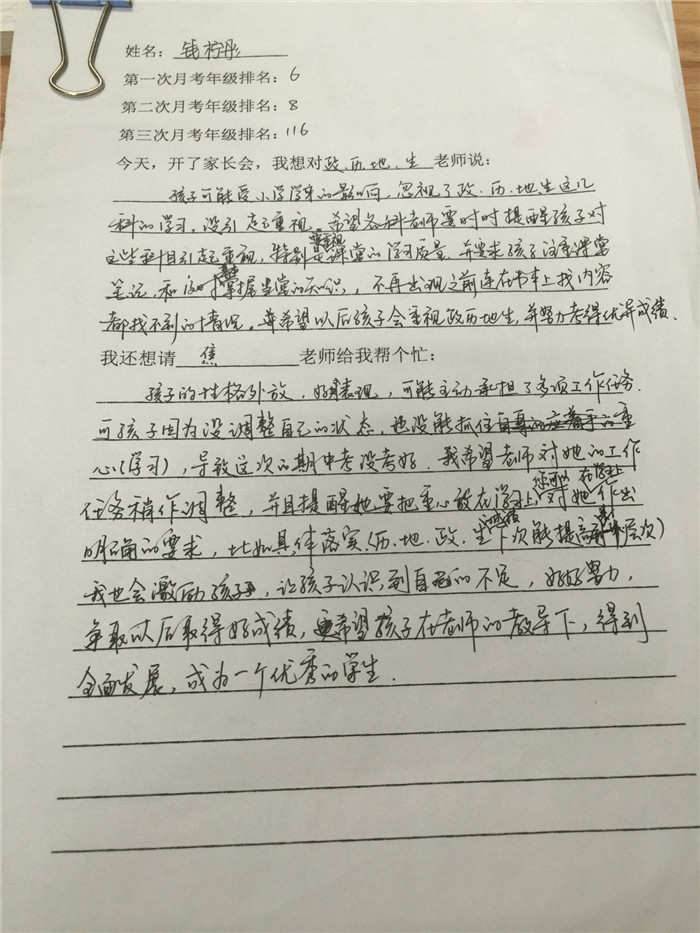 姓名：钱柠彤
第一次月考年级排名：6
第二次月考年级排名：8
第三次月考年级排名：116
今天，开了家长会，我想对政.历.地.生老师说：
孩子可能受小学学习的影响，忽视了政.历.地生这几
科的学习，没引起重视。希望各科老师要时时提醒孩子对
这些科目引起重视，特别要重视课堂的学习质量，并要求孩子注重课堂
笔记，和及时掌握当堂的知识，不再出现之前连在书本上找内容
都找不到的情况。并希望以后孩子会重视政历地生，并努力考得优异成绩。
我还想请 焦 老师给我帮个忙：
孩子的性格外放，好表现，可能主动承担了多项工作任务.
可孩子因为没调整自己的状态，也没能抓住重
心(学习)，导致这次的期中考没考好．我希望老师对她的工作
任务稍作调整，并且提醒她要把重心放在学习上，您可以在学习上对她作出
明确的要求，比如具体落实(历.地.政.生成绩下次能提高几个层次)
我也会激励孩子，让孩子认识到自己的不足，好好努力，
争取以后取得好成绩，更希望孩子在老师的教导下，得到
全面发展，成为一个优秀的学生．